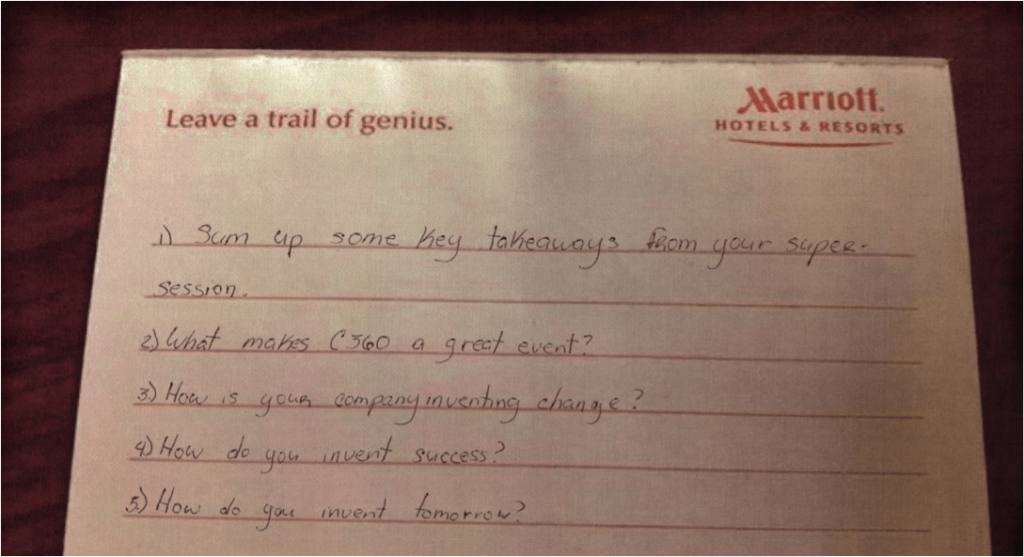 Leave a trail of genius.
Marriott
HOTELS & RESORTS
1) Sum up some key takeaways from your super-
session.
2) What makes C360 a great event?
3.) How is your company inventing change?
4) How do you invent success?
5.) How do you invent tomorrow?